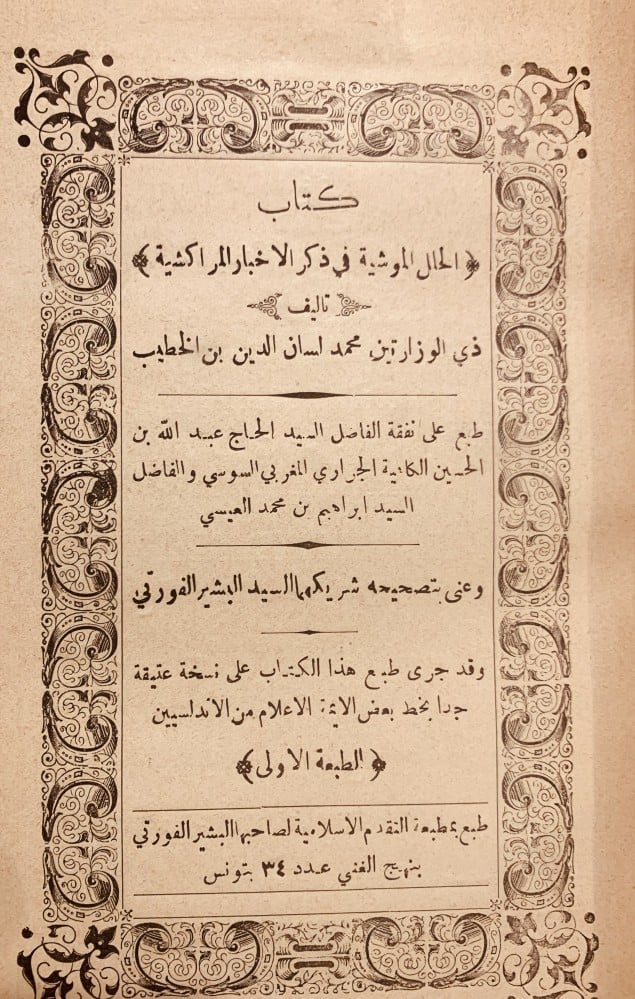 كتاب
﴿ الحلل الموشية في ذكر الاخبار المراكشية ﴾
تاليف
ذي الوزارتين محمد لسان الدين بن الخطيب
طبع على نفقة الفاضل السيد الحاج عبد الله بن
الحسين الكانبية الجراري المغربي السوسي والفاضل
السيد ابراهيم بن محمد العيسي
وعنى بتصحيحه شريكهما السيد البشير الفورتي
وقد جرى طبع هذا الكتاب على نسخة عتيقة
جدا بخط بعض الايمة الاعلام من الاندلسيين
﴿ الطبعة الاولى ﴾
طبع بمطبعة التقدم الاسلامية لصاحبها البشير الفورتي
بنهج الغني عدد ٣٤ بتونس